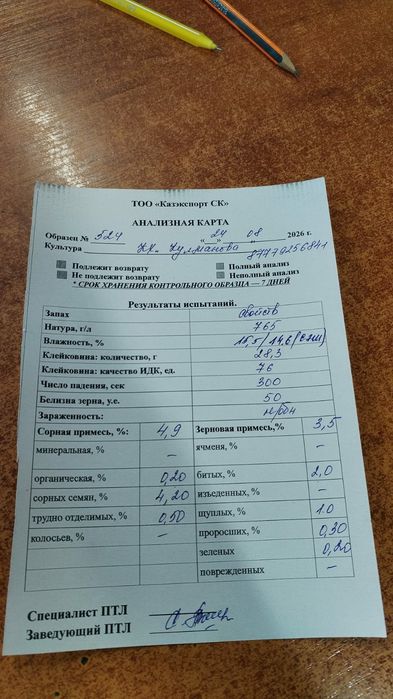 ТОО «Катэкспорт СК»
АНАЛИЗНАЯ КАРТА
Образец № 524 « 24 » 08 2026 г.
Культура кх. Кулманова 87779256841
Подлежит возврату Полный анализ
Не подлежит возврату Неполный анализ
* СРОК ХРАНЕНИЯ КОНТРОЛЬНОГО ОБРАЗЦА — 7 ДНЕЙ
Результаты испытаний.
Запах свойств
Натура, г/л 765
Влажность, % 15,5/14,6
Клейковина: количество, г 28,3
Клейковина: качество ИДК, ед. 76
Число падения, сек 300
Белизна зерна, у.е. 50
Зараженность: н/обн
Сорная примесь, %: 4,9 Зерновая примесь,% 3,5
минеральная, % – ячменя, % –
органическая, % 0,20 битых, % 2,0
сорных семян, % 4,20 изъеденных, % –
трудно отделимых, % 0,50 щуплых, % 1.0
колосьев, % – проросших, % 0,30
зеленых 0,20
поврежденных –
Специалист ПТЛ
Заведующий ПТЛ